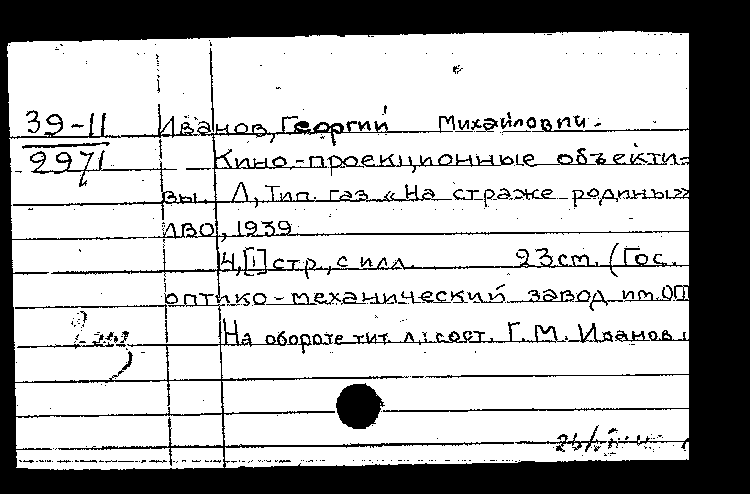 39-11
2971
Иванов, Георгий Михайлович.
Кино-проекционные объекти-
вы. Л, Тип. газ. «На страже родины»
ЛВО, 1939
4,[1] стр., с илл. 23см. (Гос.
оптико-механический завод им. ОГП
2 экз
На обороте тит. л.: сост. Г. М. Иванов